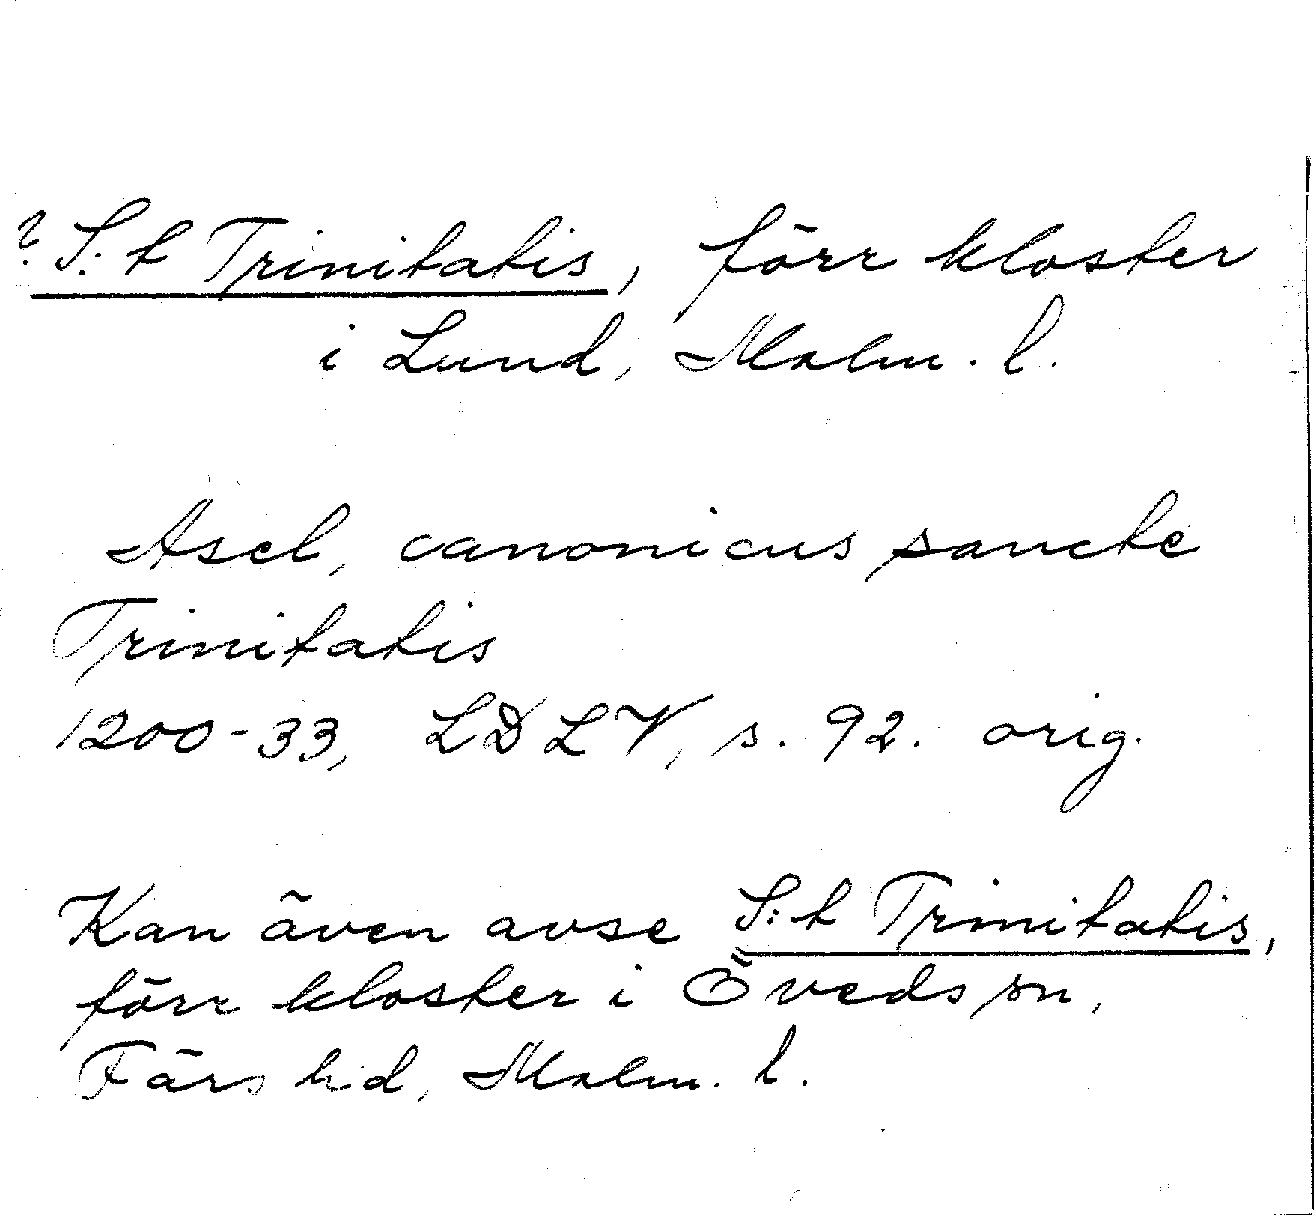 ? S:t Trinitatis, förr kloster
i Lund, Malm. l.
Asel, canonicus sancte
Trinitatis
1200-33, LDLV, s. 92. orig.
Kan även avse S:t Trinitatis,
förr kloster i Öveds sn,
Färs hd, Malm. l.